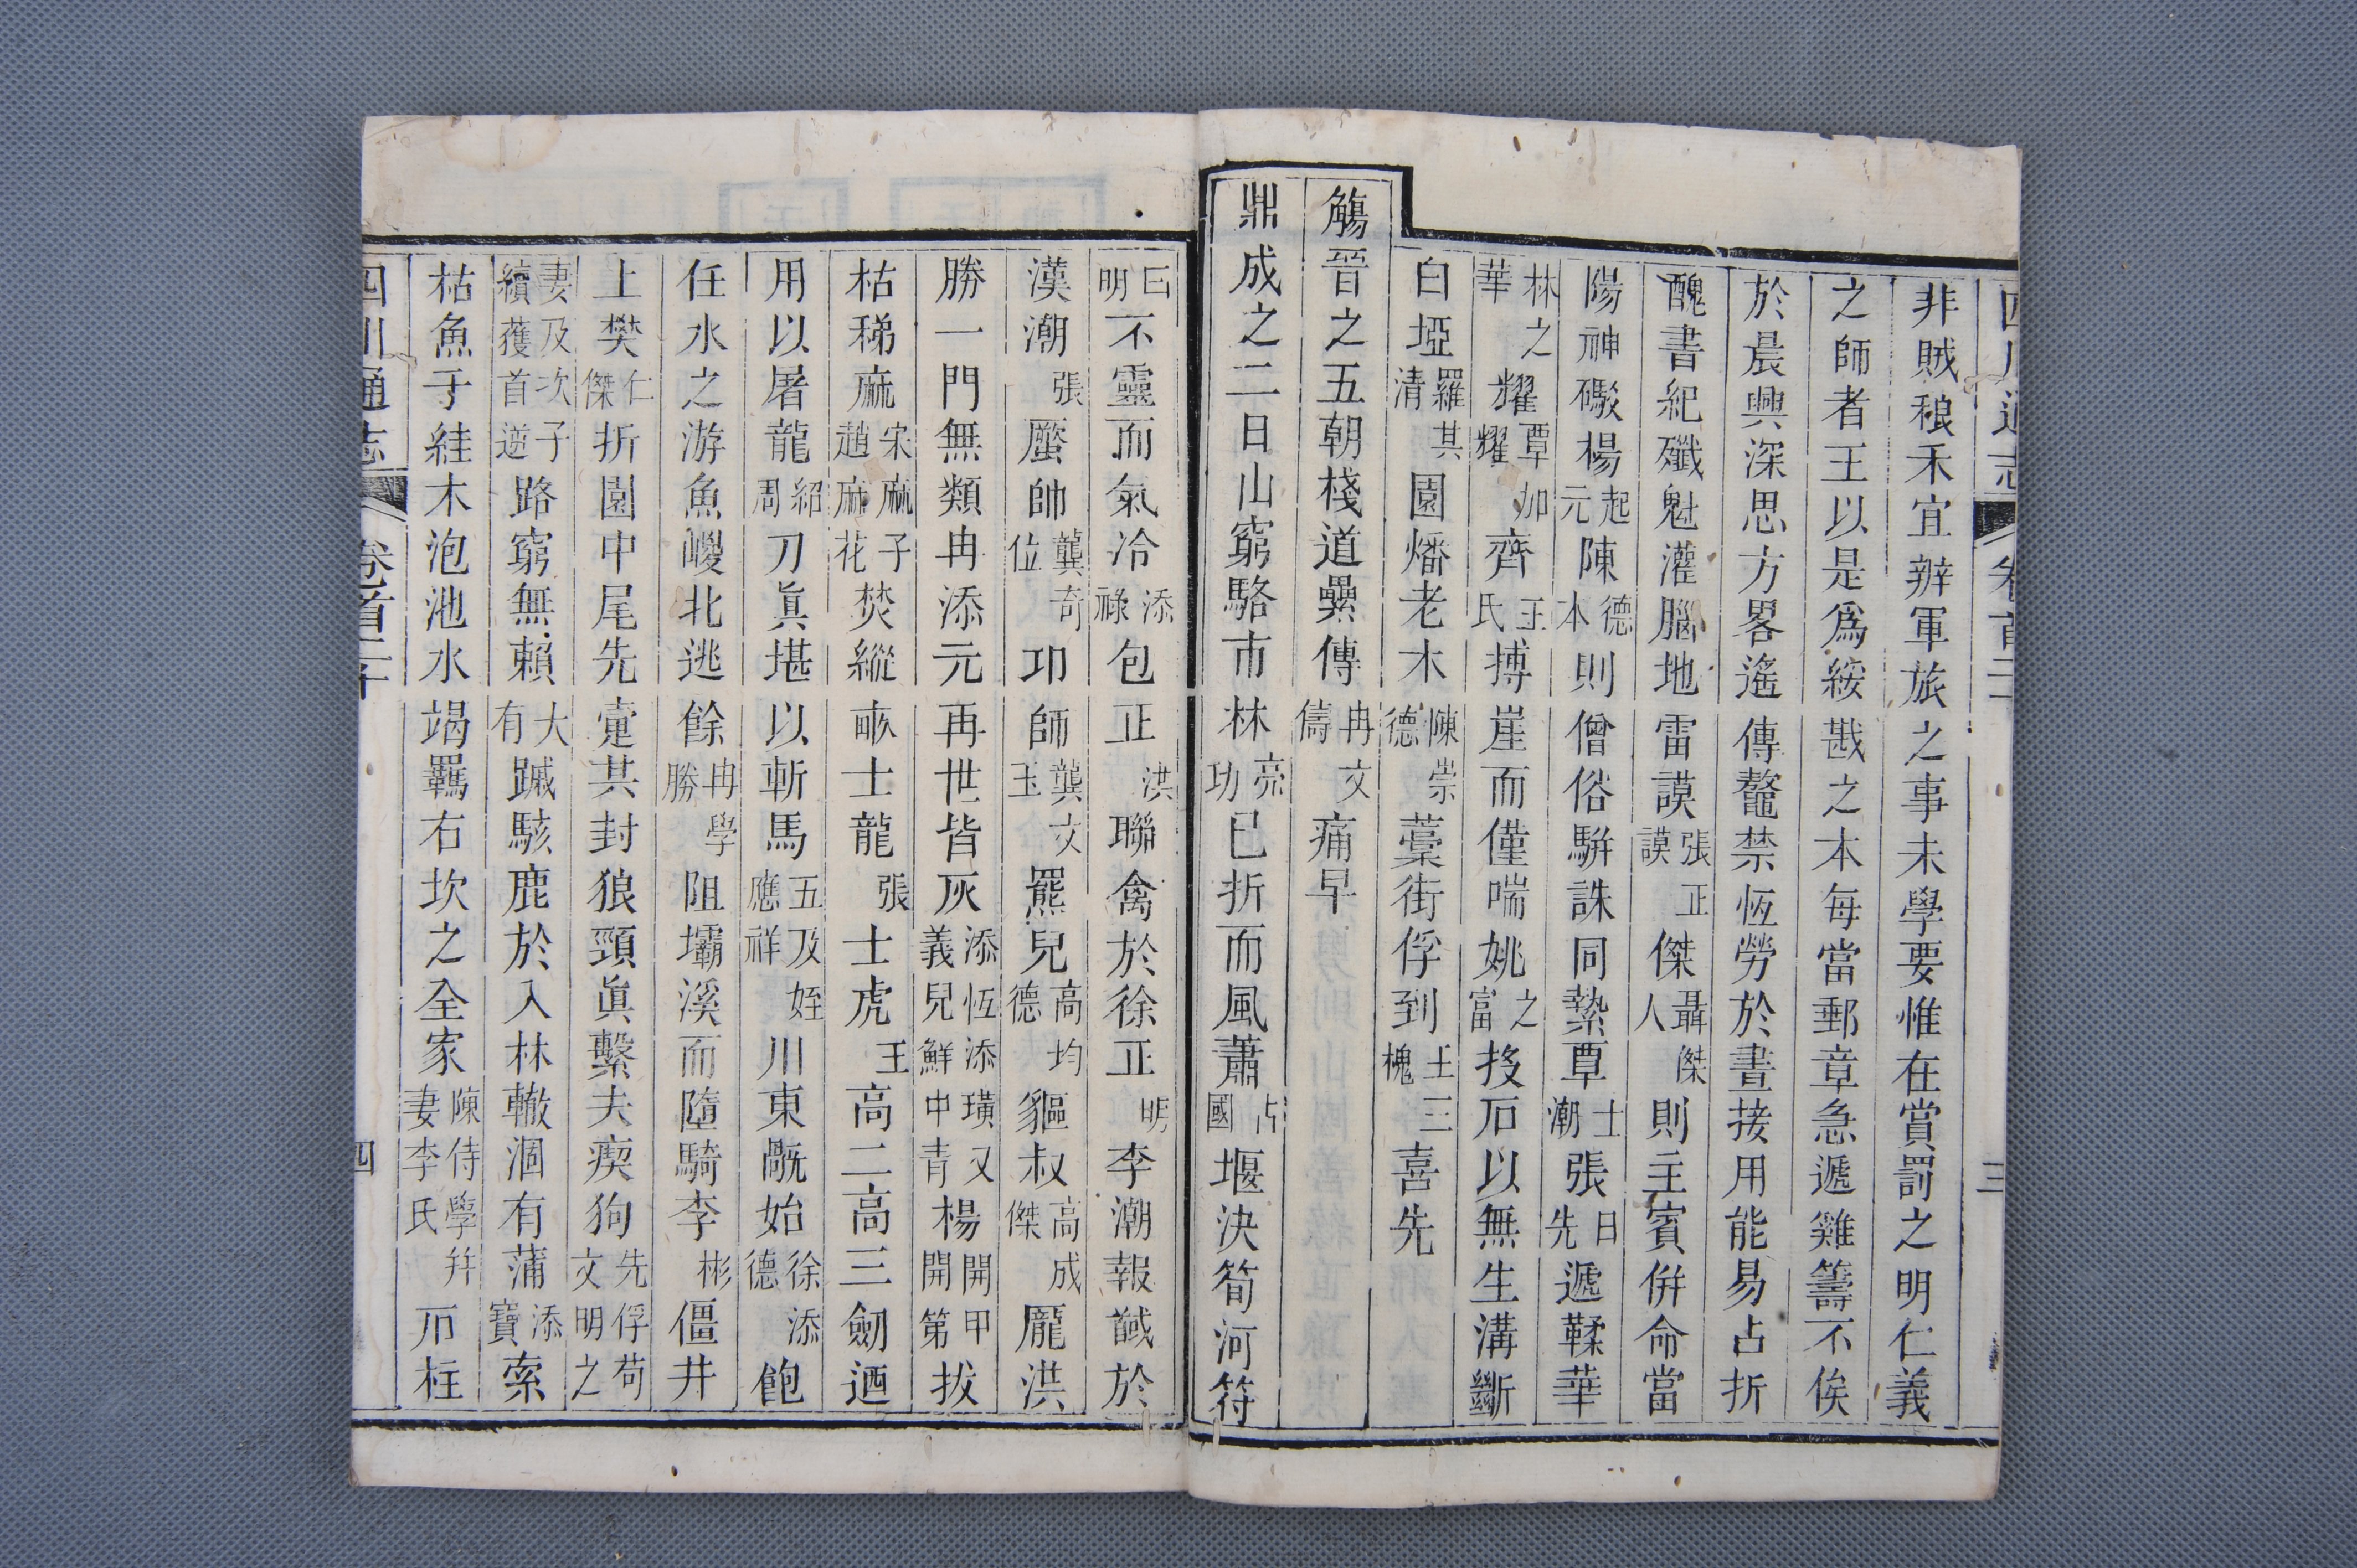 四川通志 卷首二 三
非賊稂禾宜辦軍旅之事未學要惟在賞罰之明仁義
之師者王以是爲綏戡之本每當郵章急遞雞籌不俟
於晨興深思方畧遙傳鼇禁恆勞於晝接用能易占折
醜書紀殲魁灌腦地雷謨張正謨傑聶傑人則主賓倂命當
陽神礮楊起元陳德本則僧俗駢誅同縶覃士潮張日先遞鞣華
林之華耀覃加耀齊王氏搏崖而僅喘姚之富投石以無生溝斷
白埡羅其清園燔老木陳崇德藁街俘到王三槐喜先
觴晉之五朝棧道櫐傳冉文儔痛早
鼎成之二日山窮駱市林亮功已折而風蕭占國堰決筍河符
曰明不靈而氣冷添祿包正洪聯禽於徐正明李潮報馘於
漢潮張蜃帥龔奇位卭師龔文玉羆兒高均德貙叔高成傑龐洪
勝一門無類冉添元再世皆灰添恆添璜又義兒鮮中青楊開甲開第拔
枯稊麻宋麻子趙麻花焚縱畝士龍張士虎王高二高三劒迺
用以屠龍紹周刀眞堪以斬馬五及姪應祥川東厩始徐添德飽
任水之游魚㟲北逃餘冉學勝阻壩溪而墮騎李彬僵井
上樊仁傑折園中尾先疐其封狼頸眞繫夫瘈狗先俘苟文明之
妻及次子續獲首逆路窮無賴大有駭鹿於入林轍涸有蒲添寶索
枯魚于絓木泡池水竭羈右坎之全家陳侍學幷妻李氏石柱
四川通志 卷首二十 四